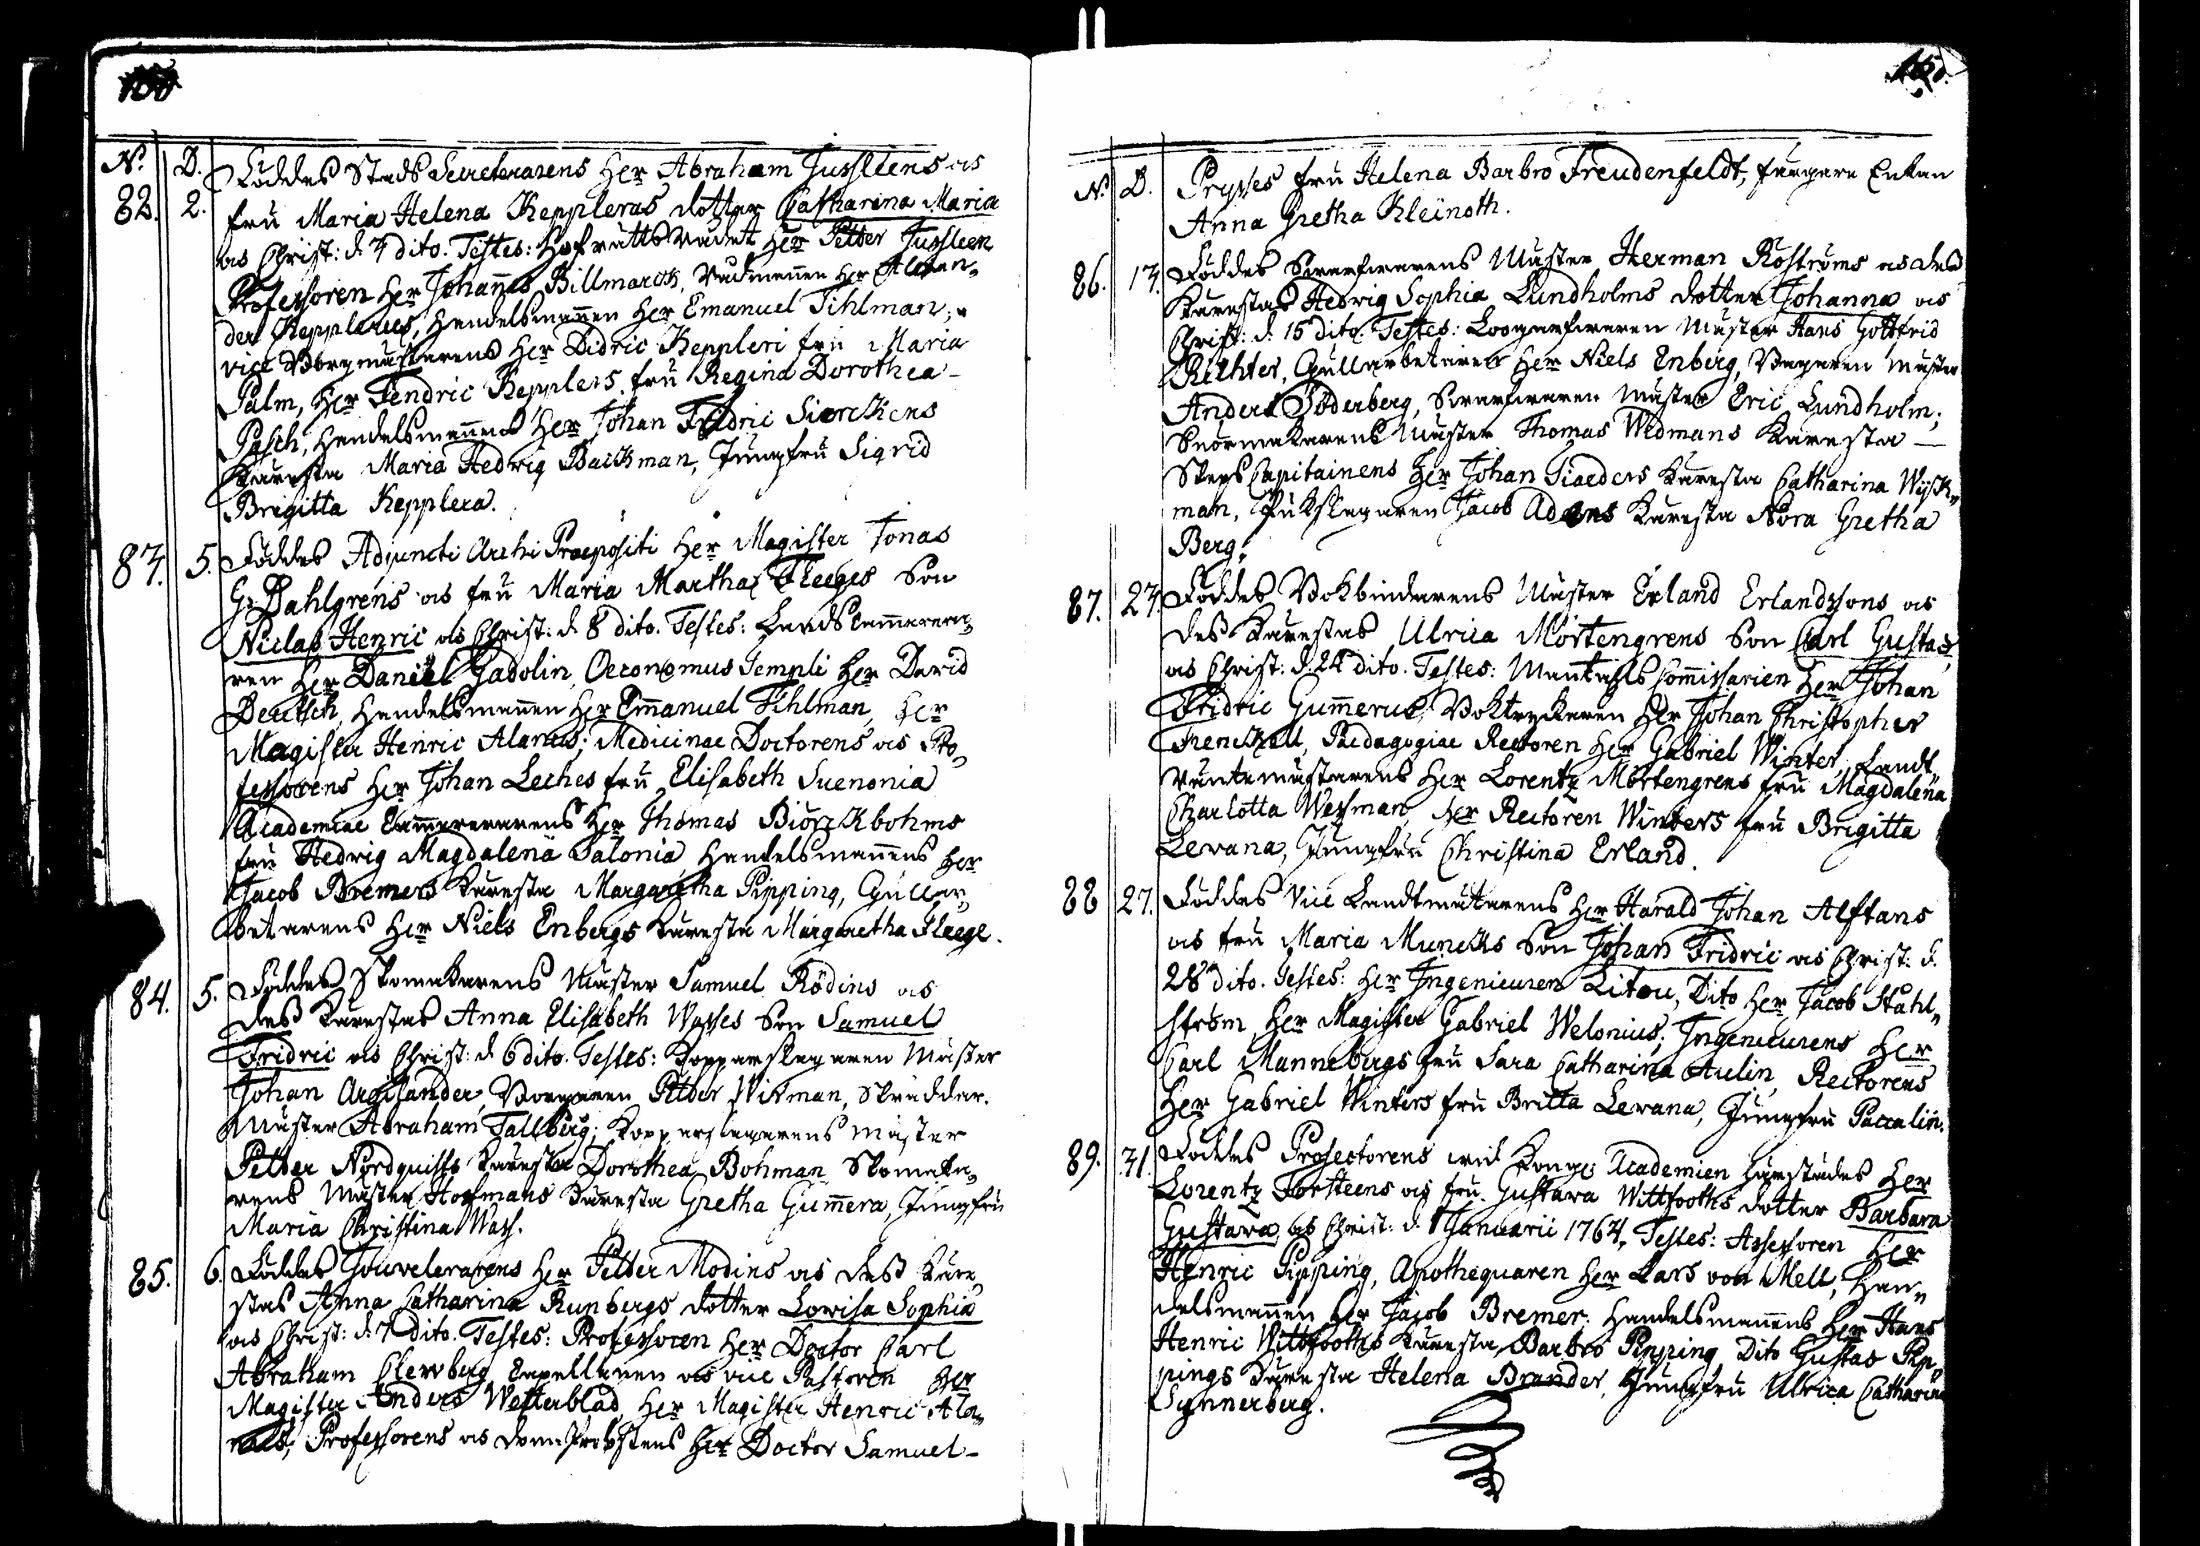 N:o D.
82. 2. Föddes Stads Secreterarens Her Abraham Jussleens os
fru Maria Helena Keppleras dotter Catharina Maria
os Christ: d. 3 dito. Testes: Hofrätts Rådet Her Petter Jussleen
Professoren Her Johannes Billmarck, Rådmannen Her Alexan„
der Keplerus, Handelsmannen Her Emanuel Tihlman;
vice Borgmästarens Her Didric Keppleri fru Maria
Palm, Her Fendric Kepplers fru Regina Dorothea
Pasch, Handelsmannens Her Johan Fridric Sierckens
Käresta Maria Hedwig Backman, Jungfru Sigrid
Brigitta Kepplera.
83. 5. Föddes Adjuncti Archi Præpositi Her Magister Jonas
G: Dahlgrens os fru Maria Martha Fleeges Son
Niclas Henric os Christ: d. 8 dito. Testes: Landscammerera„
ren Her Daniel Gadolin, Oeconomus Templi Her David
Deutsch, Handelsmannen Her Emanuel Tihlman, Her
Magister Henric Alanus; Medicinae Doctorens os Pro„
fessorens Her Johan Leches fru Elisabeth Suenonia
Academiae Cammererarens Her Thomas Biörckbohms
fru Hedvig Magdalena Salonia, Handelsmannens Her
Jacob Bremers Käresta Margaretha Pipping, Gullar„
betarens Her Niels Enbergs Käresta Margaretha Fleege.
84. 5. Föddes Skomakarens Mäster Samuel Rödins os
dess Kärestas Anna Elisabeth Wasses Son Samuel
Fridric os Christ: d. 6 dito. Testes: Kopparslagaren Mäster
Johan Argillander, Borgaren Petter Wikman, Skräddar.
Mäster Abraham Tallberg; Kopparslagarens Mäster
Petter Nordquists Käresta Dorothea Bohman, Skomaka„
rens Mäster Hoffmans Käresta Gretha Gummera, Jungfru
Maria Christina Wass.
85. 6. Föddes Jouvelerarens Her Petter Modins os dess Käre„
stas Anna Catharina Runbergs dotter Lowisa Sophia
os Christ: d. 7 dito. Testes: Professoren Her Doctor Carl
Abraham Clewberg, Capellanen os vice Pastoren Her
Magister Anders Wetterblad, Her Magister Henric Ala„
nus; Professorens os dom-Probstens Her Doctor Samuel
N:o D. Prysses fru Helena Barbro Freudenfeldt, Färgare Enkan
Anna Gretha Kleinoth.
86. 13. Föddes Swarfwarens Mäster Herman Roströms os dess
Kärestas Hedvig Sophia Lundholms dotter Johanna os
Christ: d. 15 dito. Testes: Loogarfwaren Mäster Hans Gottfrid
Richter, Gullarbetaren Her Niels Enberg, Bagaren Mäster
Anders Söderberg, Swarfwaren Mäster Eric Lundholm;
Snörmakarens Mäster Thomas Wedmans Käresta
Skeps Capitainens Her Johan Siaeders Käresta Catharina Wyk„
man, Pukslagaren Jacob Adams Käresta Nora Gretha
Berg.
87. 23. Föddes Bokbindarens Mäster Erland Erlandssons os
dess Kärestas Ulrica Mörtengrens Son Carl Gustaf
os Christ: d. 24 dito. Testes: Mantahls Commissarien Her Johan
Fridric Gummerus, Boktryckaren Her Johan Christopher
Frenckell, Paedagogiae Rectoren Her Gabriel Winter, Landt
Räntmästarens Her Lorentz Mörtengrens fru Magdalena
Charlotta Wessman, Her Rectoren Winters fru Brigitta
Levana, Jungfru Christina Erland.
88 27. Föddes vice Landtmätarens Her Harald Johan Alftans
os fru Maria Muncks Son Johan Fridric os Christ: d.
28 dito. Testes: Her Ingenieuren Litou, Dito Her Jacob Ståhl„
ström, Her Magister Gabriel Welonius; Ingenieurens Her
Carl Mannebergs fru Sara Catharina Aulin, Rectorens
Her Gabriel Winters fru Britta Levana, Jungfru Paccalin.
89. 31. Föddes Prosectorens wid Kongl. Academien härstädes Her
Lorentz Torsteens os fru Gustava Wittfooths dotter Barbara
Gustava os Christ: d. 1 Januarii 1764. Testes: Assessoren Her
Henric Pipping, Apothequaren Her Lars von Mell, Han„
delsmannen Her Jacob Bremer; Handelsmannens Her Hans
Henric Wittfooths Käresta Barbro Pipping, Dito Gustaf Pip„
pings Käresta Helena Brander, Jungfru Ulrica Catharina
Synnerberg.